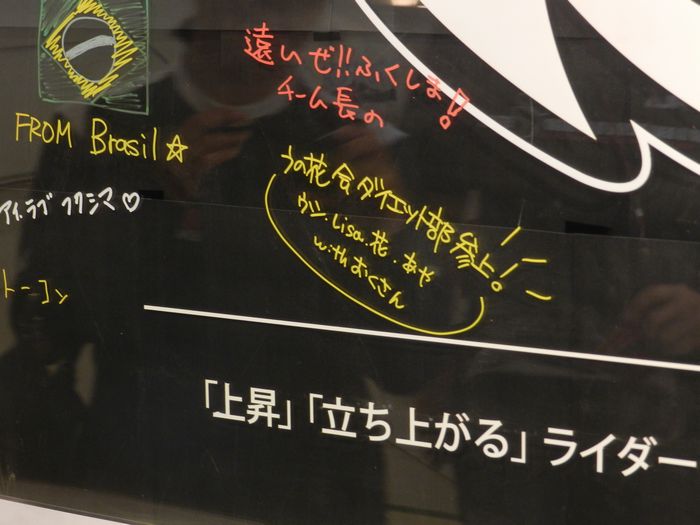 遠いぜ!!ふくしま!
チーム長の
FROM Brasil☆
アイ.ラブ フクシマ♡
うの花会ダイエット部 参上!
ウシ.Lisa.花.あや
withおくさん
「上昇」「立ち上がる」ライダー